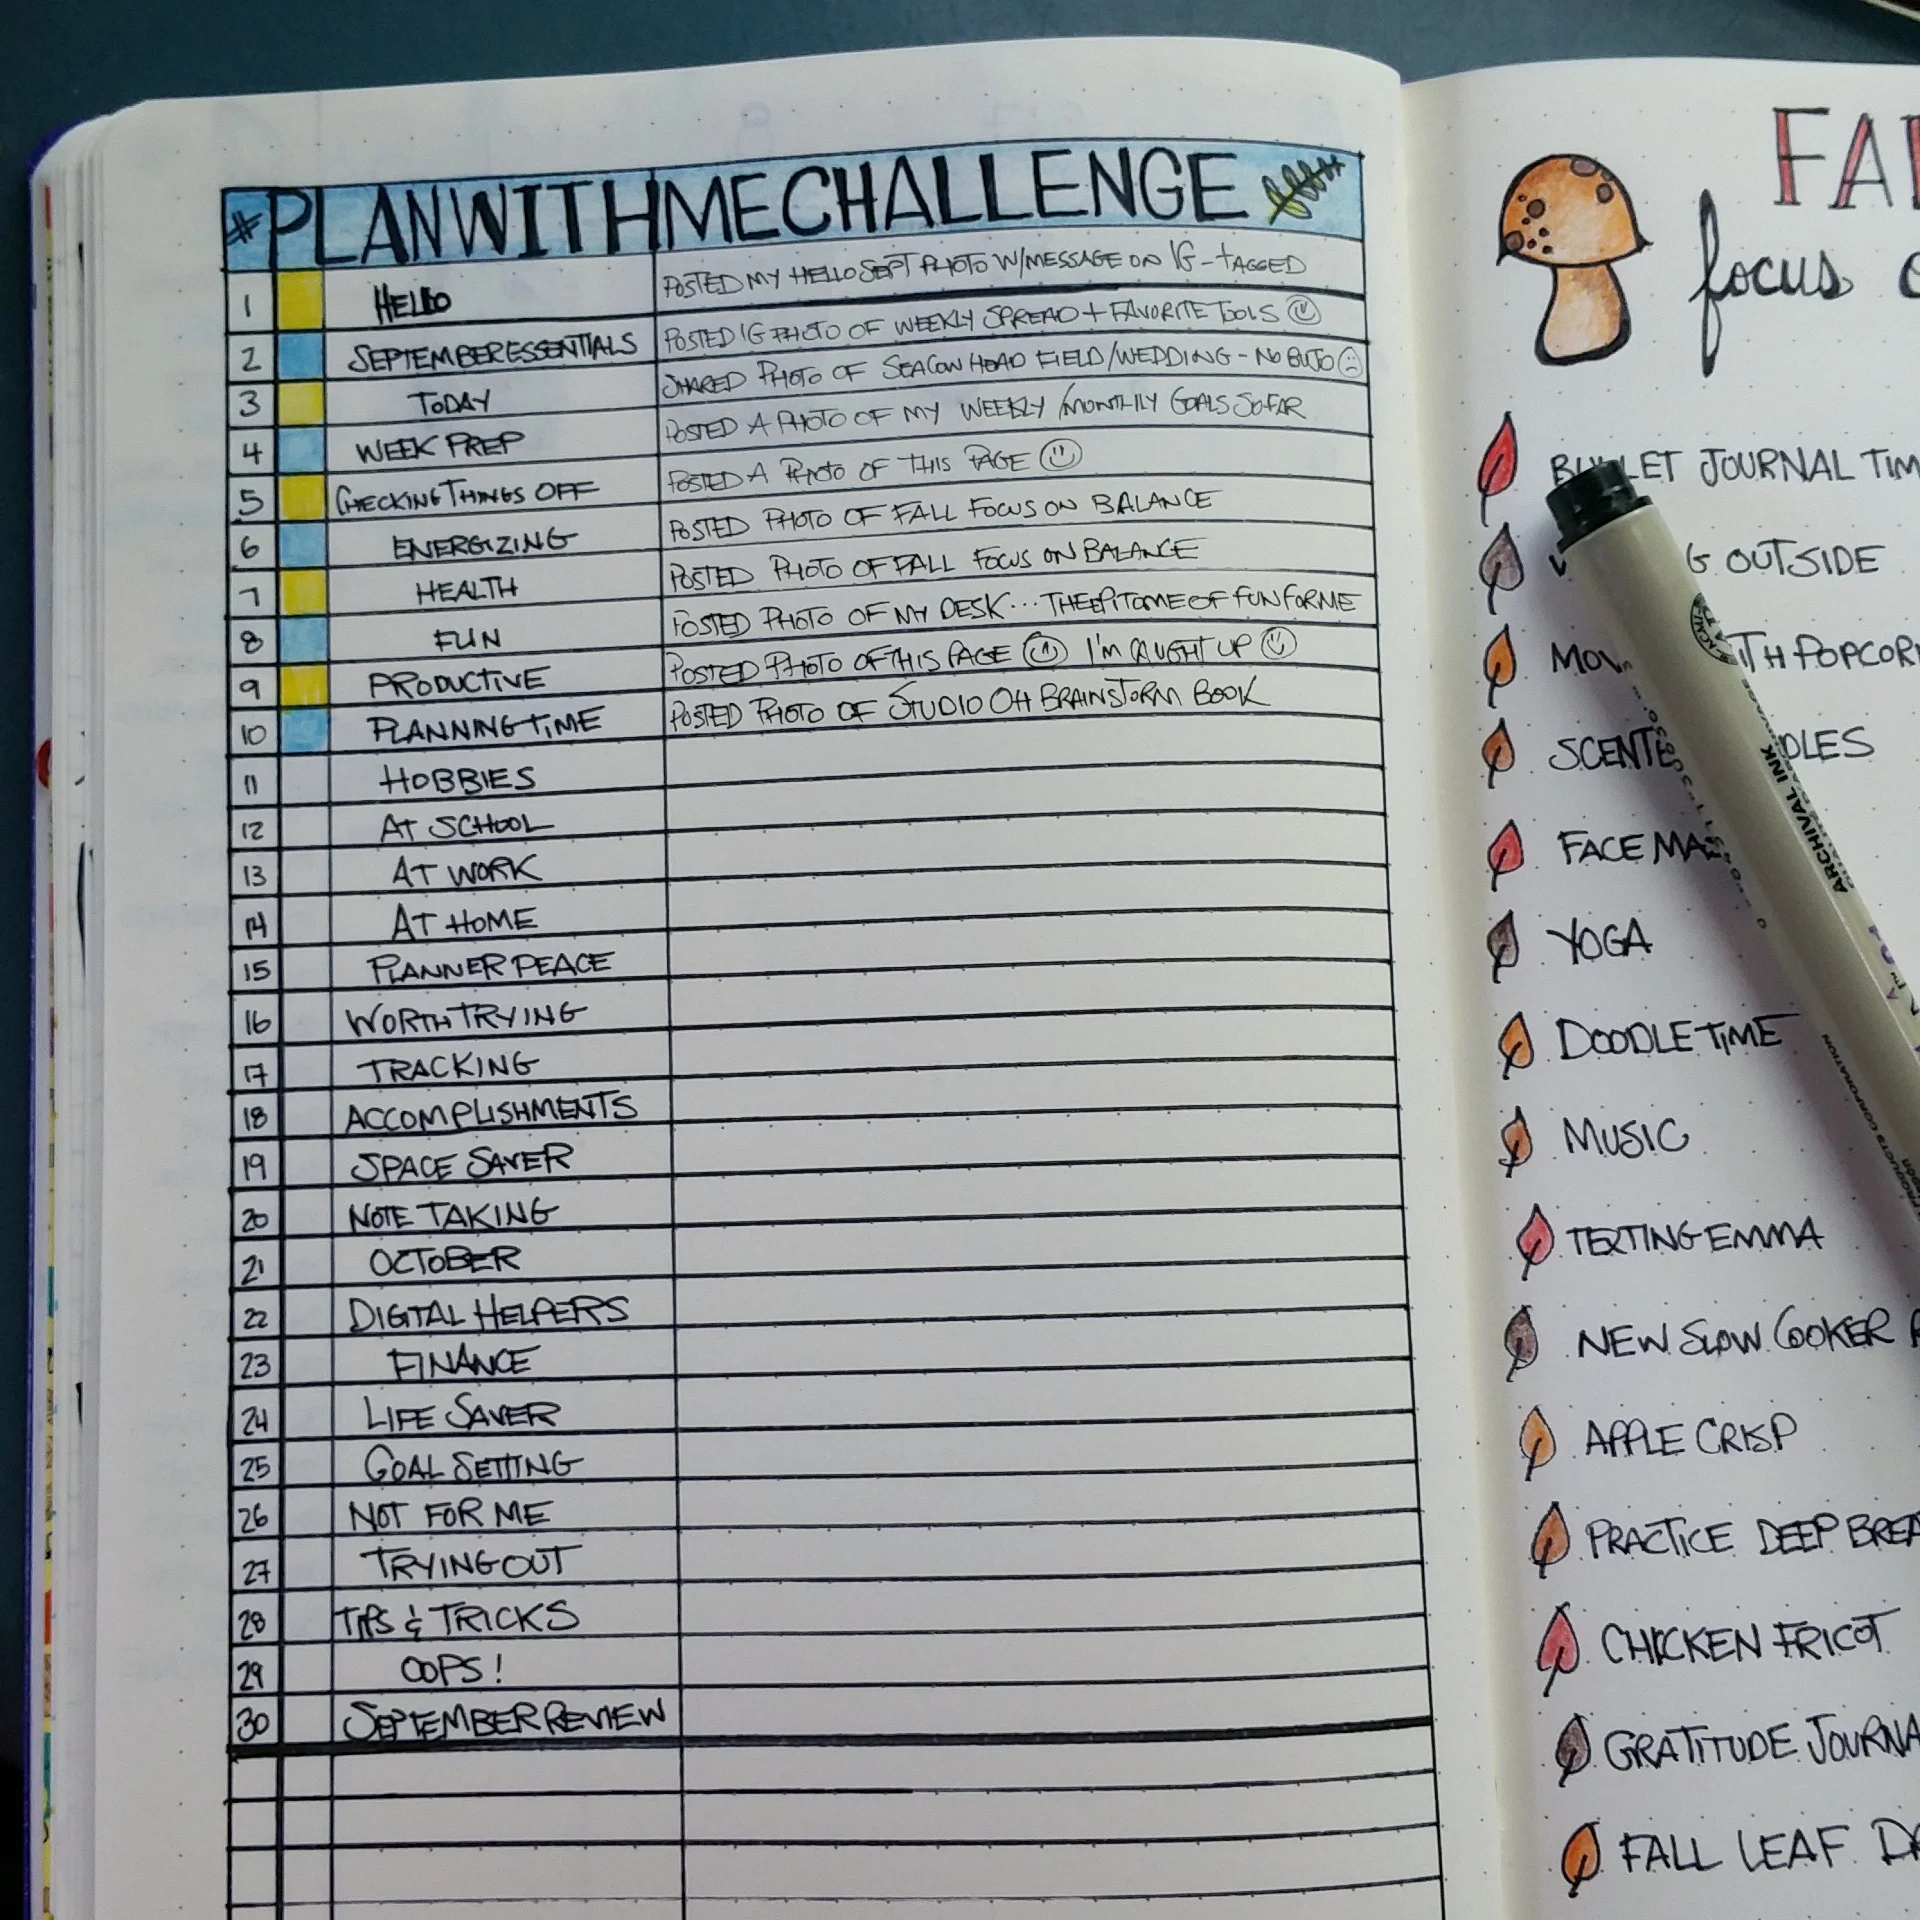 #PLANWITHMECHALLENGE
1 HELLO POSTED MY HELLO SEPT PHOTO W/MESSAGE ON IG - TAGGED
2 SEPTEMBER ESSENTIALS POSTED IG PHOTO OF WEEKLY SPREAD + FAVORITE TOOLS
3 TODAY SHARED PHOTO OF SEACOW HEAD FIELD/WEDDING - NO BUJO
4 WEEK PREP POSTED A PHOTO OF MY WEEKLY/MONTHLY GOALS SO FAR
5 CHECKING THINGS OFF POSTED A PHOTO OF THIS PAGE
6 ENERGIZING POSTED PHOTO OF FALL FOCUS ON BALANCE
7 HEALTH POSTED PHOTO OF FALL FOCUS ON BALANCE
8 FUN POSTED PHOTO OF MY DESK... THE EPITOME OF FUN FOR ME
9 PRODUCTIVE POSTED PHOTO OF THIS PAGE I'M CAUGHT UP
10 PLANNING TIME POSTED PHOTO OF STUDIO OH BRAINSTORM BOOK
11 HOBBIES
12 AT SCHOOL
13 AT WORK
14 AT HOME
15 PLANNER PEACE
16 WORTH TRYING
17 TRACKING
18 ACCOMPLISHMENTS
19 SPACE SAVER
20 NOTE TAKING
21 OCTOBER
22 DIGITAL HELPERS
23 FINANCE
24 LIFE SAVER
25 GOAL SETTING
26 NOT FOR ME
27 TRYING OUT
28 TIPS & TRICKS
29 OOPS!
30 SEPTEMBER REVIEW
FA
focus
BULLET JOURNAL TIM
OUTSIDE
POPCOR
SCENTE DLES
FACE MA
YOGA
DOODLE TIME
MUSIC
TEXTING EMMA
NEW SLOW COOKER
APPLE CRISP
PRACTICE DEEP BREA
CHICKEN FRICOT
GRATITUDE JOURNA
FALL LEAF
ARCHIVAL INK
PRODUCTS CORPORATION